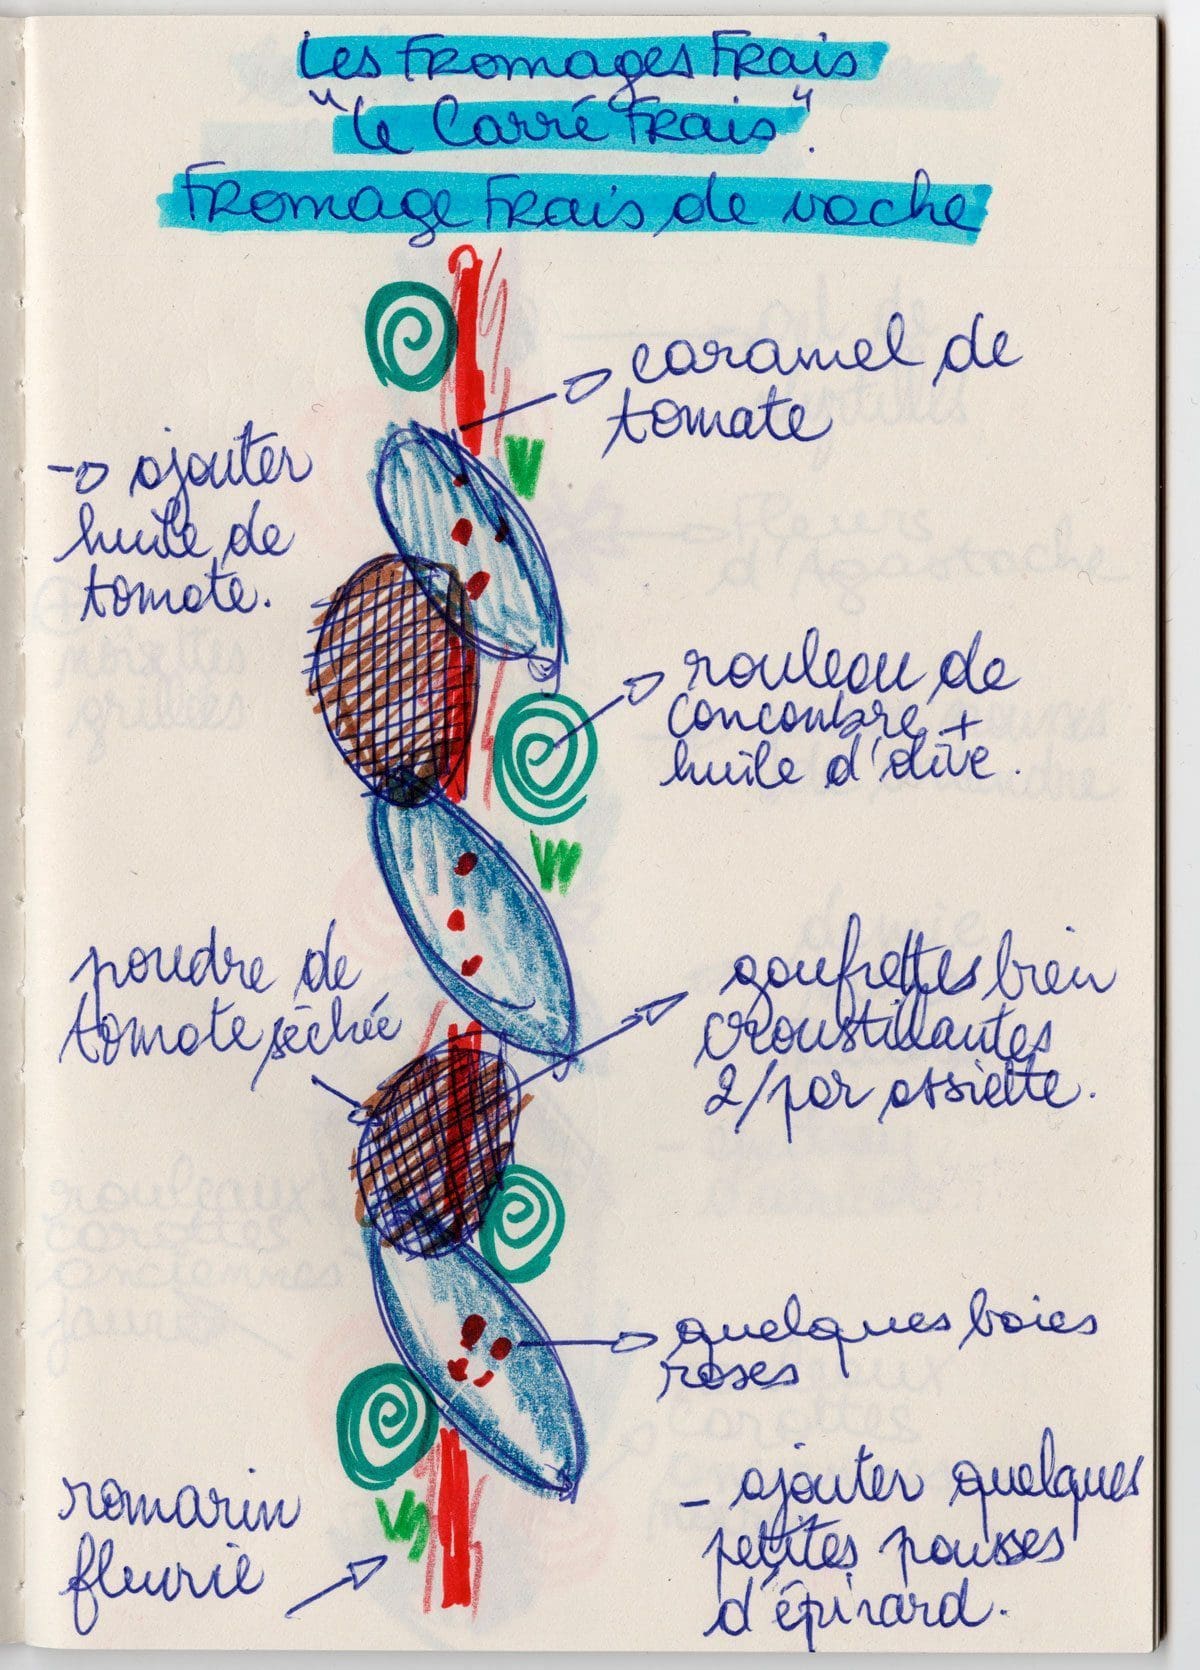 Les Fromages Frais
"Le Carré Frais".
Fromage Frais de vache
caramel de
tomate
→ ajouter
huile de
tomate.
rouleau de
concombre +
huile d'olive.
poudre de
tomate séchée
goufrettes bien
croustillantes
2/par assiette.
quelques baies
roses
romarin
fleurie
- ajouter quelques
petites pousses
d'épinard.
Fleurs
d'Agastache
noisettes
grillées
rouleaux
carottes
anciennes
jaunes
carottes